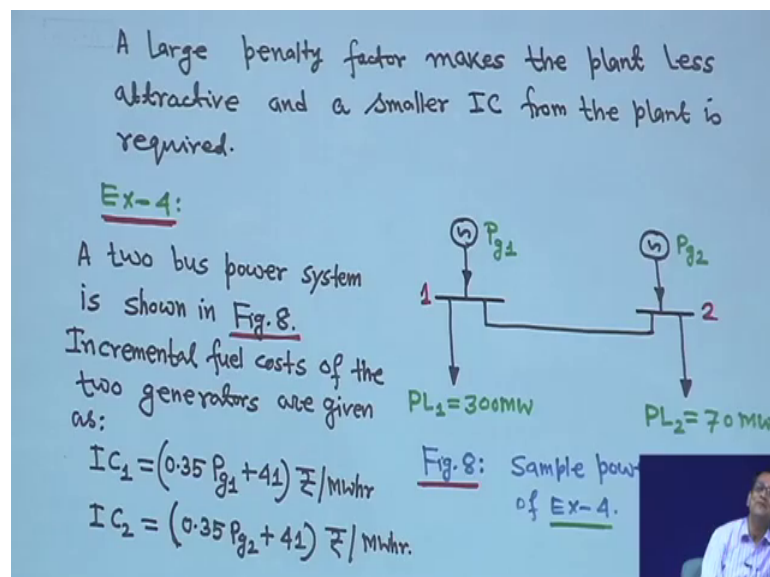 A large penalty factor makes the plant less
attractive and a smaller IC from the plant is
required.
Ex-4:
A two bus power system
is shown in Fig.8.
Incremental fuel costs of the
two generators are given
as:
IC₁ = (0.35 Pg1 + 41) ₹/Mwhr
IC₂ = (0.35 Pg2 + 41) ₹/Mwhr.
Pg1
Pg2
1
2
PL₁ = 300MW
PL₂ = 70MW
Fig.8: Sample pow
of Ex-4.